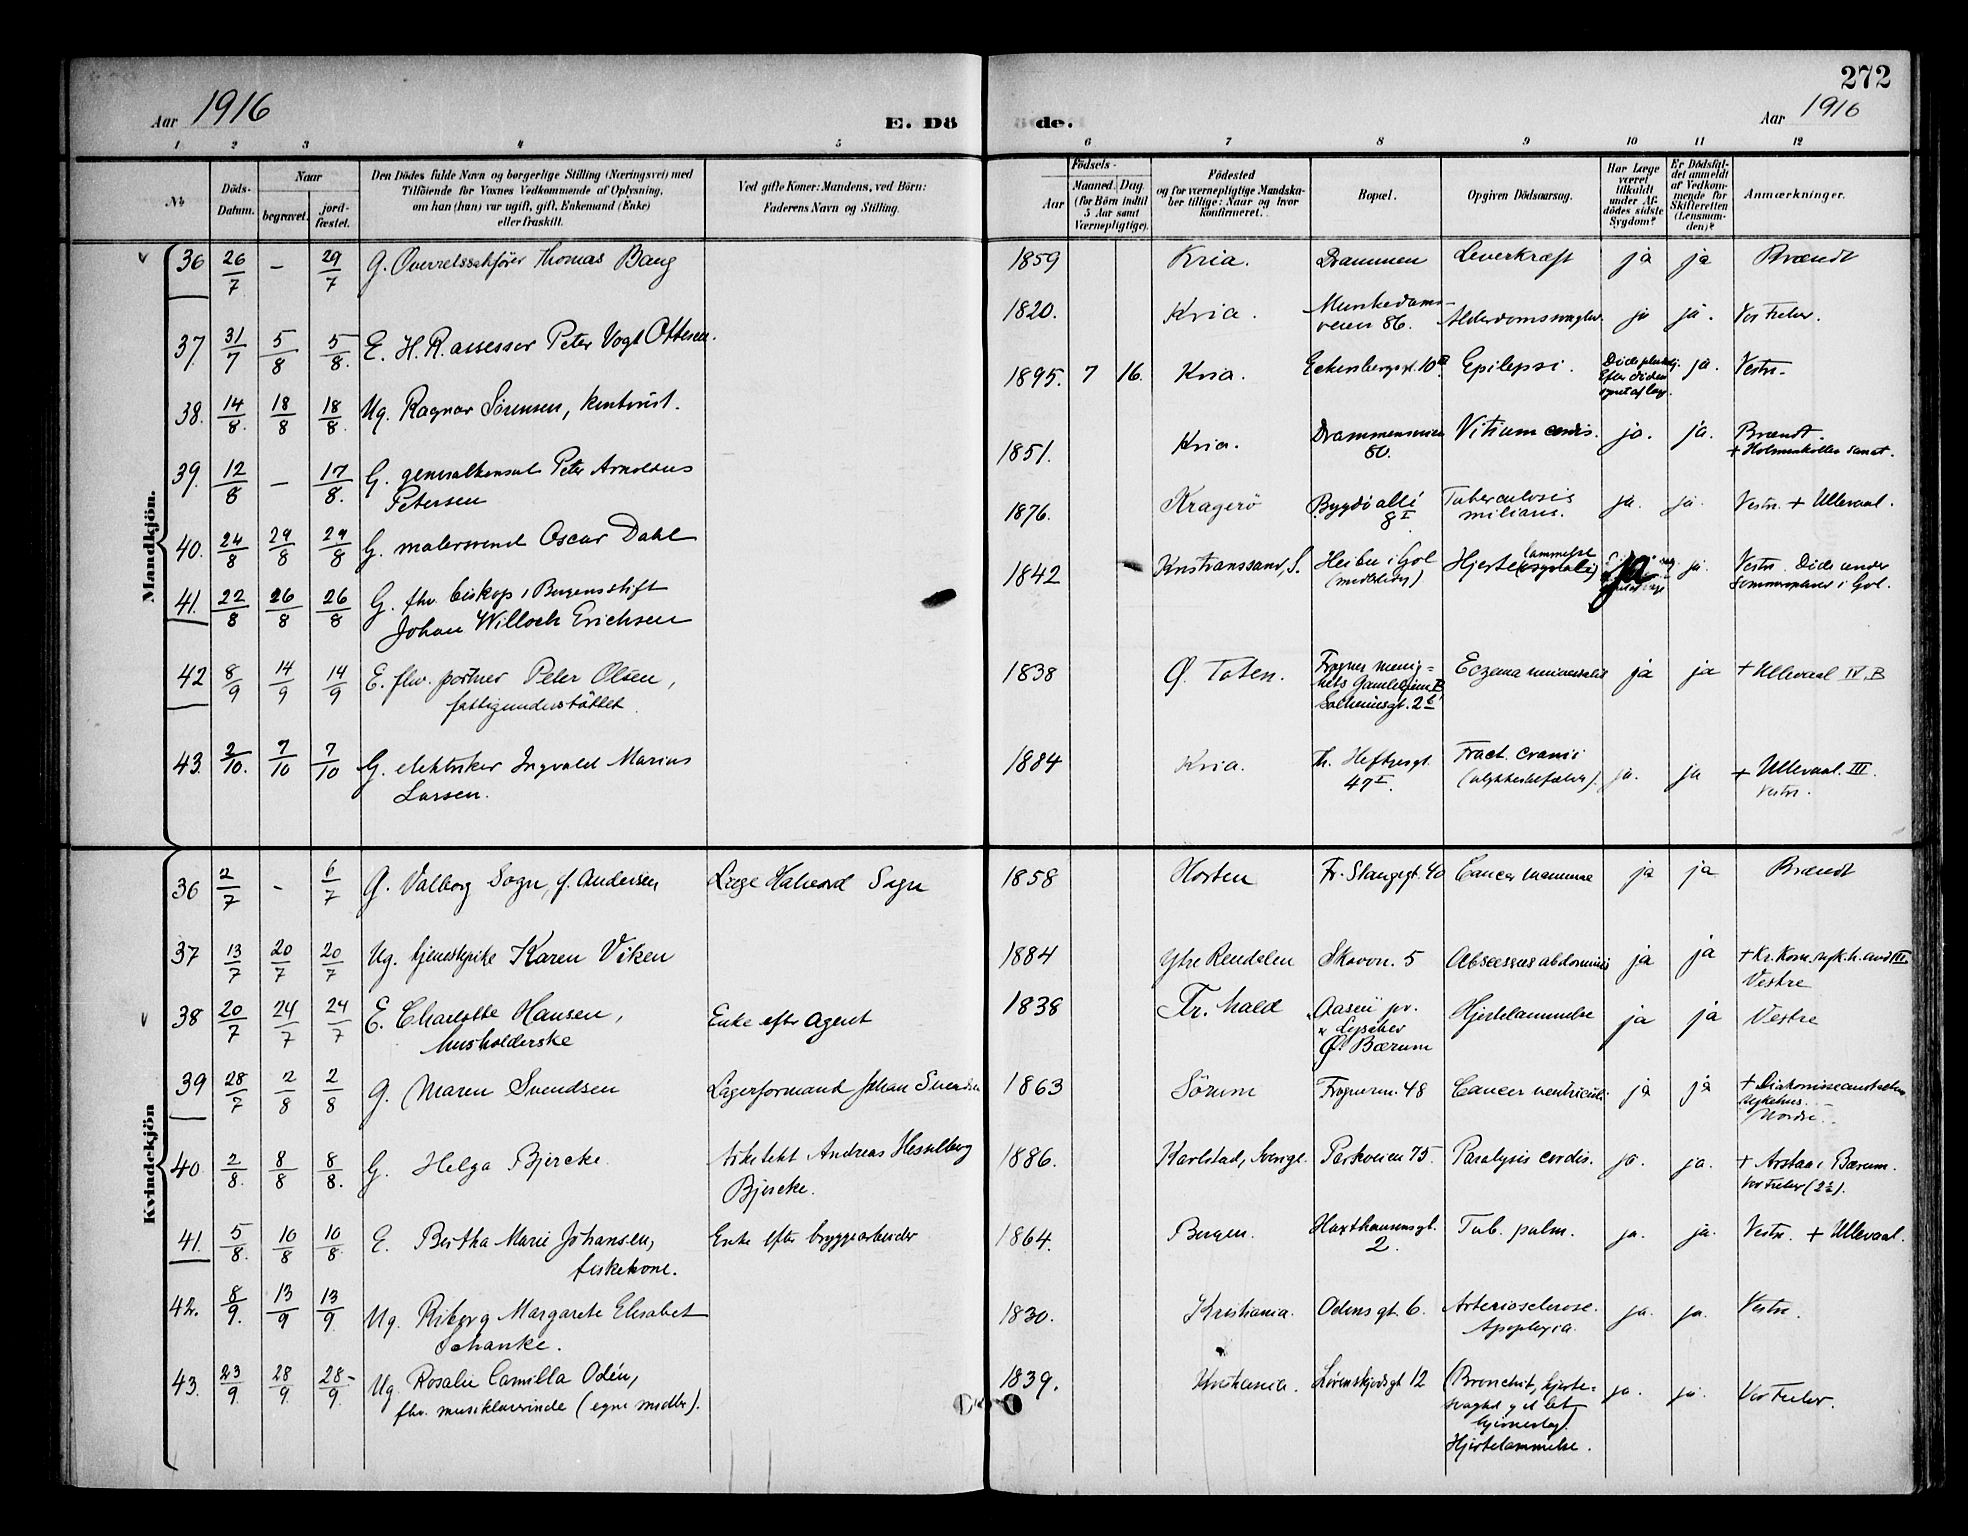 272
Aar 1916
E. Dö
de.
Aar 1916
1 2 3 4 5 6 7 8 9 10 11 12
No
Döds-
Datum.
Naar
begravet.
jord-
fæstet.
Den Dödes fulde Navn og borgerlige Stilling (Næringsvei) med
Tilföiende for Voxnes Vedkommende af Oplysning,
om han (hun) var ugift, gift, Enkemand (Enke)
eller fraskilt.
Ved gifte Koner: Mandens, ved Börn:
Faderens Navn og Stilling.
Födsels-
Aar
Maaned. Dag.
(for Börn indtil
5 Aar samt
Værnepligtige).
Födested
og for værnepligtige Mandska-
ber tillige: Naar og hvor
konfirmeret.
Bopæl.
Opgiven Dödsaarsag.
Har Læge
været
tilkaldt
under Af-
dödes sidste
Sygdom?
Er Dödsfal-
det anmeldt
af Vedkom-
mende for
Skifteretten
(Lensman-
den)?
Anmærkninger.
Mandkjön.
36 26/7 – 29/7 G. Overretssakfører Thomas Bang 1859 Kria. Drammen Leverkræft ja ja Brændt
37. 31/7 5/8 5/8. E. H.R. assessor Peter Vogt Ottesen. 1820. Kria. Munkedams-
veien 86. ja ja. Vor Frelser.
38. 14/8. 18/8 18/8. Ug. Ragnar Sørensen, kontorist. 1895. 7 16. Kria. Eckersbergsgt. 10 III. Epilepsi. ja. Vestre.
39. 12/8 – 17/8. G. generalkonsul Peter Arnoldus
Petersen 1851. Kria. Drammensveien
80. Vitium cordis. ja. ja. Brændt.
+ Holmenkollen sanat.
40. 24/8 29/8 29/8 G. malersvend Oscar Dahl 1876. Kragerö Bygdö allé
8 I Tuberculosis
miliaris. ja. ja. Vestre. + Ullevaal.
41. 22/8 26/8 26/8 G. fhv. biskop i Bergens stift
Johan Willoch Erichsen 1842 Kristianssand, S. Heibu i Gol
Hjertelammelse
ja ja. Vestre. Døde under
Sommerophold i Gol.
42 8/9 14/9 14/9 E. fhv. portner Peter Olsen,
fattigunderstöttet. 1838 Ø. Toten. Frogner menig-
hets Gamlehjem B
Solheimsgt. 2 Eczema universalis ja ja + Ullevaal IV. B
43. 2/10. 7/10 7/10 G. elektriker Ingvald Marius
Larsen. 1884 Kria. Th. Heftyesgt.
47 I. Fract. cranii
(ulykkestilfælde). ja. ja + Ullevaal. III.
Vestre.
Kvindekjön
36 2/7 – 6/7 G. Valborg Sogn, f. Andersen Læge Halvord Sogn 1858 Horten Fr. Stangsgt. 40 Cancer mammae ja ja Brændt
37 13/7 20/7 20/7 Ug. tjenestepike Karen Viken 1884 Ytre Rendalen Skovvn. 5 Abscessus abdominis ja ja + Kr. Kom. syk.h. avd III.
Vestre
38 20/7 24/7 24/7 E. Charlotte Hansen,
husholderske Enke efter Agent 1838 Fr. hald "Aasen" pr.
Lysaker
Ø. Bærum Hjertelammelse ja ja Vestre
39 28/7 2/8 2/8 G. Maren Svendsen Lagerformand Johan Svendsen 1863 Sörum Frognervn. 48 Cancer ventriculi ja ja + Diakonisseanstaltens
sykehus.
Nordre.
40 2/8. 8/8 8/8. G. Helga Bjercke. Arkitekt Andreas Hesselberg
Bjercke. 1886. Karlstad, Sverige. Parkveien 75. Paralysis cordis. ja. ja. + Arstaa i Bærum.
Vor Frelser (2/8).
41. 5/8. 10/8 10/8. E. Bertha Marie Johansen,
fiskekone. Enke efter bryggearbeider 1864. Bergen. Haxthausensgt.
2. Tub. pulm. ja. ja. Vestre. + Ullevaal.
42. 8/9. 13/9 13/9 Ug. Riborg Margarete Elisabet
Schanke. 1830. Kristiania. Odins gt. 6. Arteriosclerose.
Apoplexia. ja. ja. Vestre.
43. 23/9 28/9. 28/9. Ug. Rosalie Camilla Odén,
fhv. musiklærerinde (egne midler). 1839. Kristiania. Løvenskjoldsgt 12 (Bronchit, hjerte-
svaghet
Hjertelammelse. ja. ja. Vor Frelser.